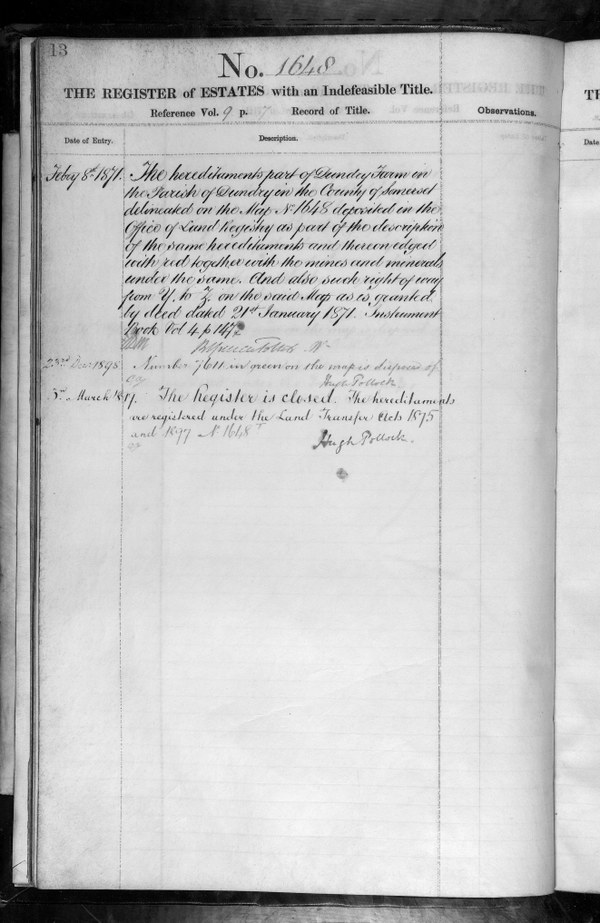 13
No. 1648
THE REGISTER of ESTATES with an Indefeasible Title.
Reference Vol. 9 p. 7 Record of Title.
Observations.
Date of Entry.
Description.
Feby 8th 1871. The hereditaments part of Dundry Farm in
the Parish of Dundry in the County of Somerset
delineated on the Map No 1648 deposited in the
Office of Land Registry as part of the description
of the same hereditaments and thereon edged
with red together with the mines and minerals
under the same. And also such right of way
from Y. to Z on the said Map as is granted
by deed dated 21st January 1871. Instrument
Book Vol 4. p 147
23rd Decr 1895 Number 7611 in green on the map is disposed of
Hugh Pollock
3rd March The Register is closed. The hereditaments
are registered under the Land Transfer Acts 1875
and 1897 No 1648
Hugh Pollock.
TH
Date